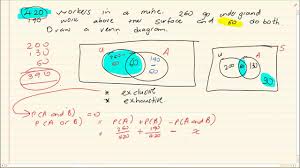 420 workers in a mine. 260 go underground
190 work above the surface and 60 do both
Draw a venn diagram.
200
130
60
390
U
A
60
U
A
60
30
* exclusive
* exhaustive
P(A and B) = 0
P(A or B) = P(A) + P(B) - P(A and B)
= 260/420 + 190/420 - x